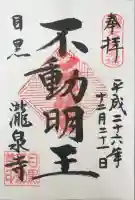 奉拝
平成二十六年
十二月二十一日
不動明王
目黒
瀧泉寺